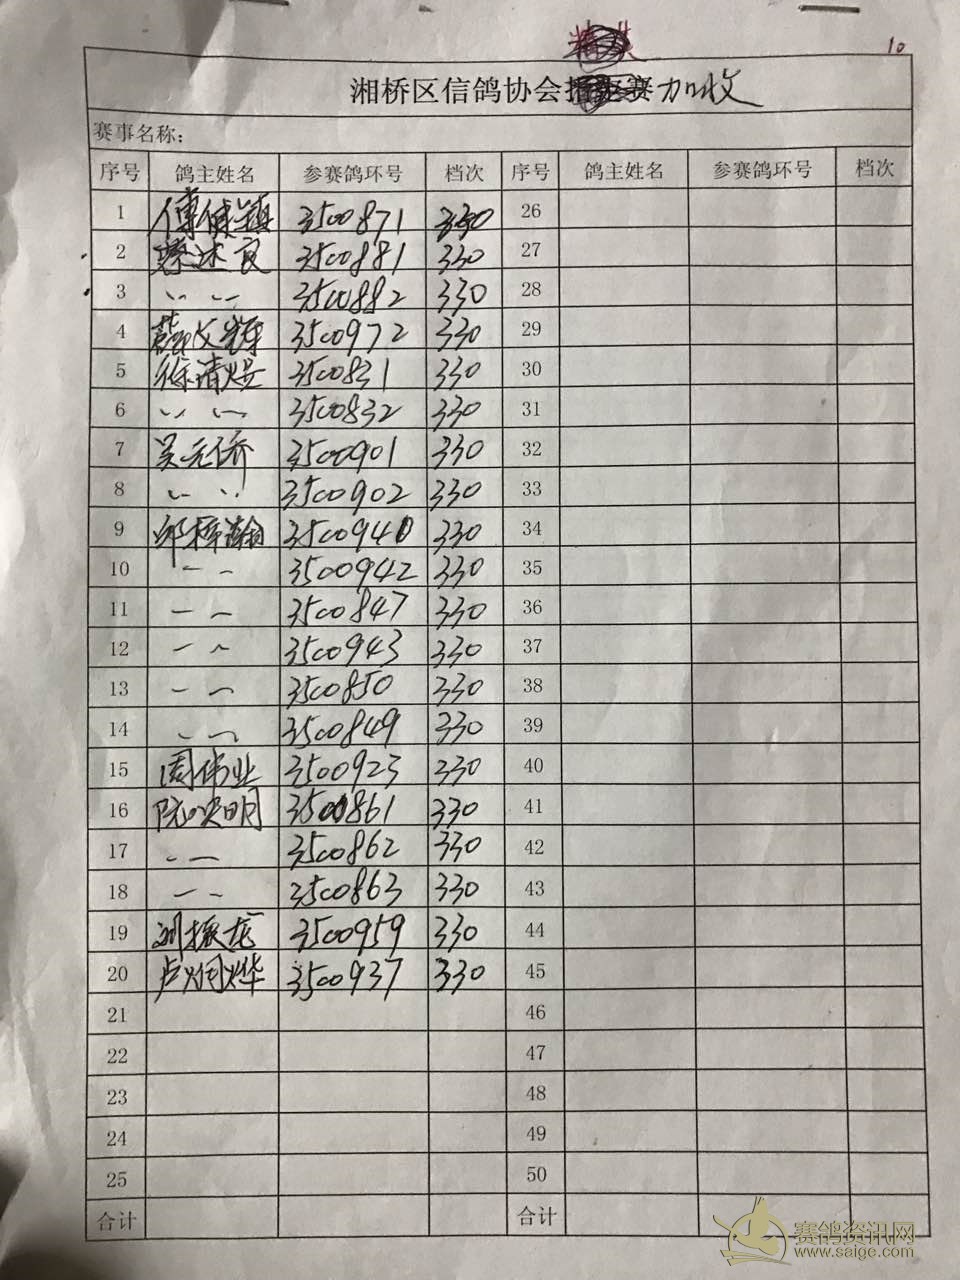 10
湘桥区信鸽协会 赛加收
赛事名称:
序号 鸽主姓名 参赛鸽环号 档次 序号 鸽主姓名 参赛鸽环号 档次
1 傅健 3500871 330 26
2 蔡述良 3500881 330 27
3 〃 〃 3500882 330 28
4 蔡文辉 3500972 330 29
5 徐清焜 3500831 330 30
6 〃 〃 3500832 330 31
7 吴元侨 3500901 330 32
8 〃 〃 3500902 330 33
9 邱梓瀚 350094 330 34
10 〃 〃 3500942 330 35
11 〃 〃 3500847 330 36
12 〃 〃 3500943 330 37
13 〃 〃 3500850 330 38
14 〃 〃 3500849 330 39
15 周伟业 3500923 330 40
16 阮映明 3500861 330 41
17 〃 〃 3500862 330 42
18 〃 〃 3500863 330 43
19 刘振龙 3500959 330 44
20 卢炯烨 3500937 330 45
21 46
22 47
23 48
24 49
25 50
合计 合计
赛鸽资讯网
www.saige.com